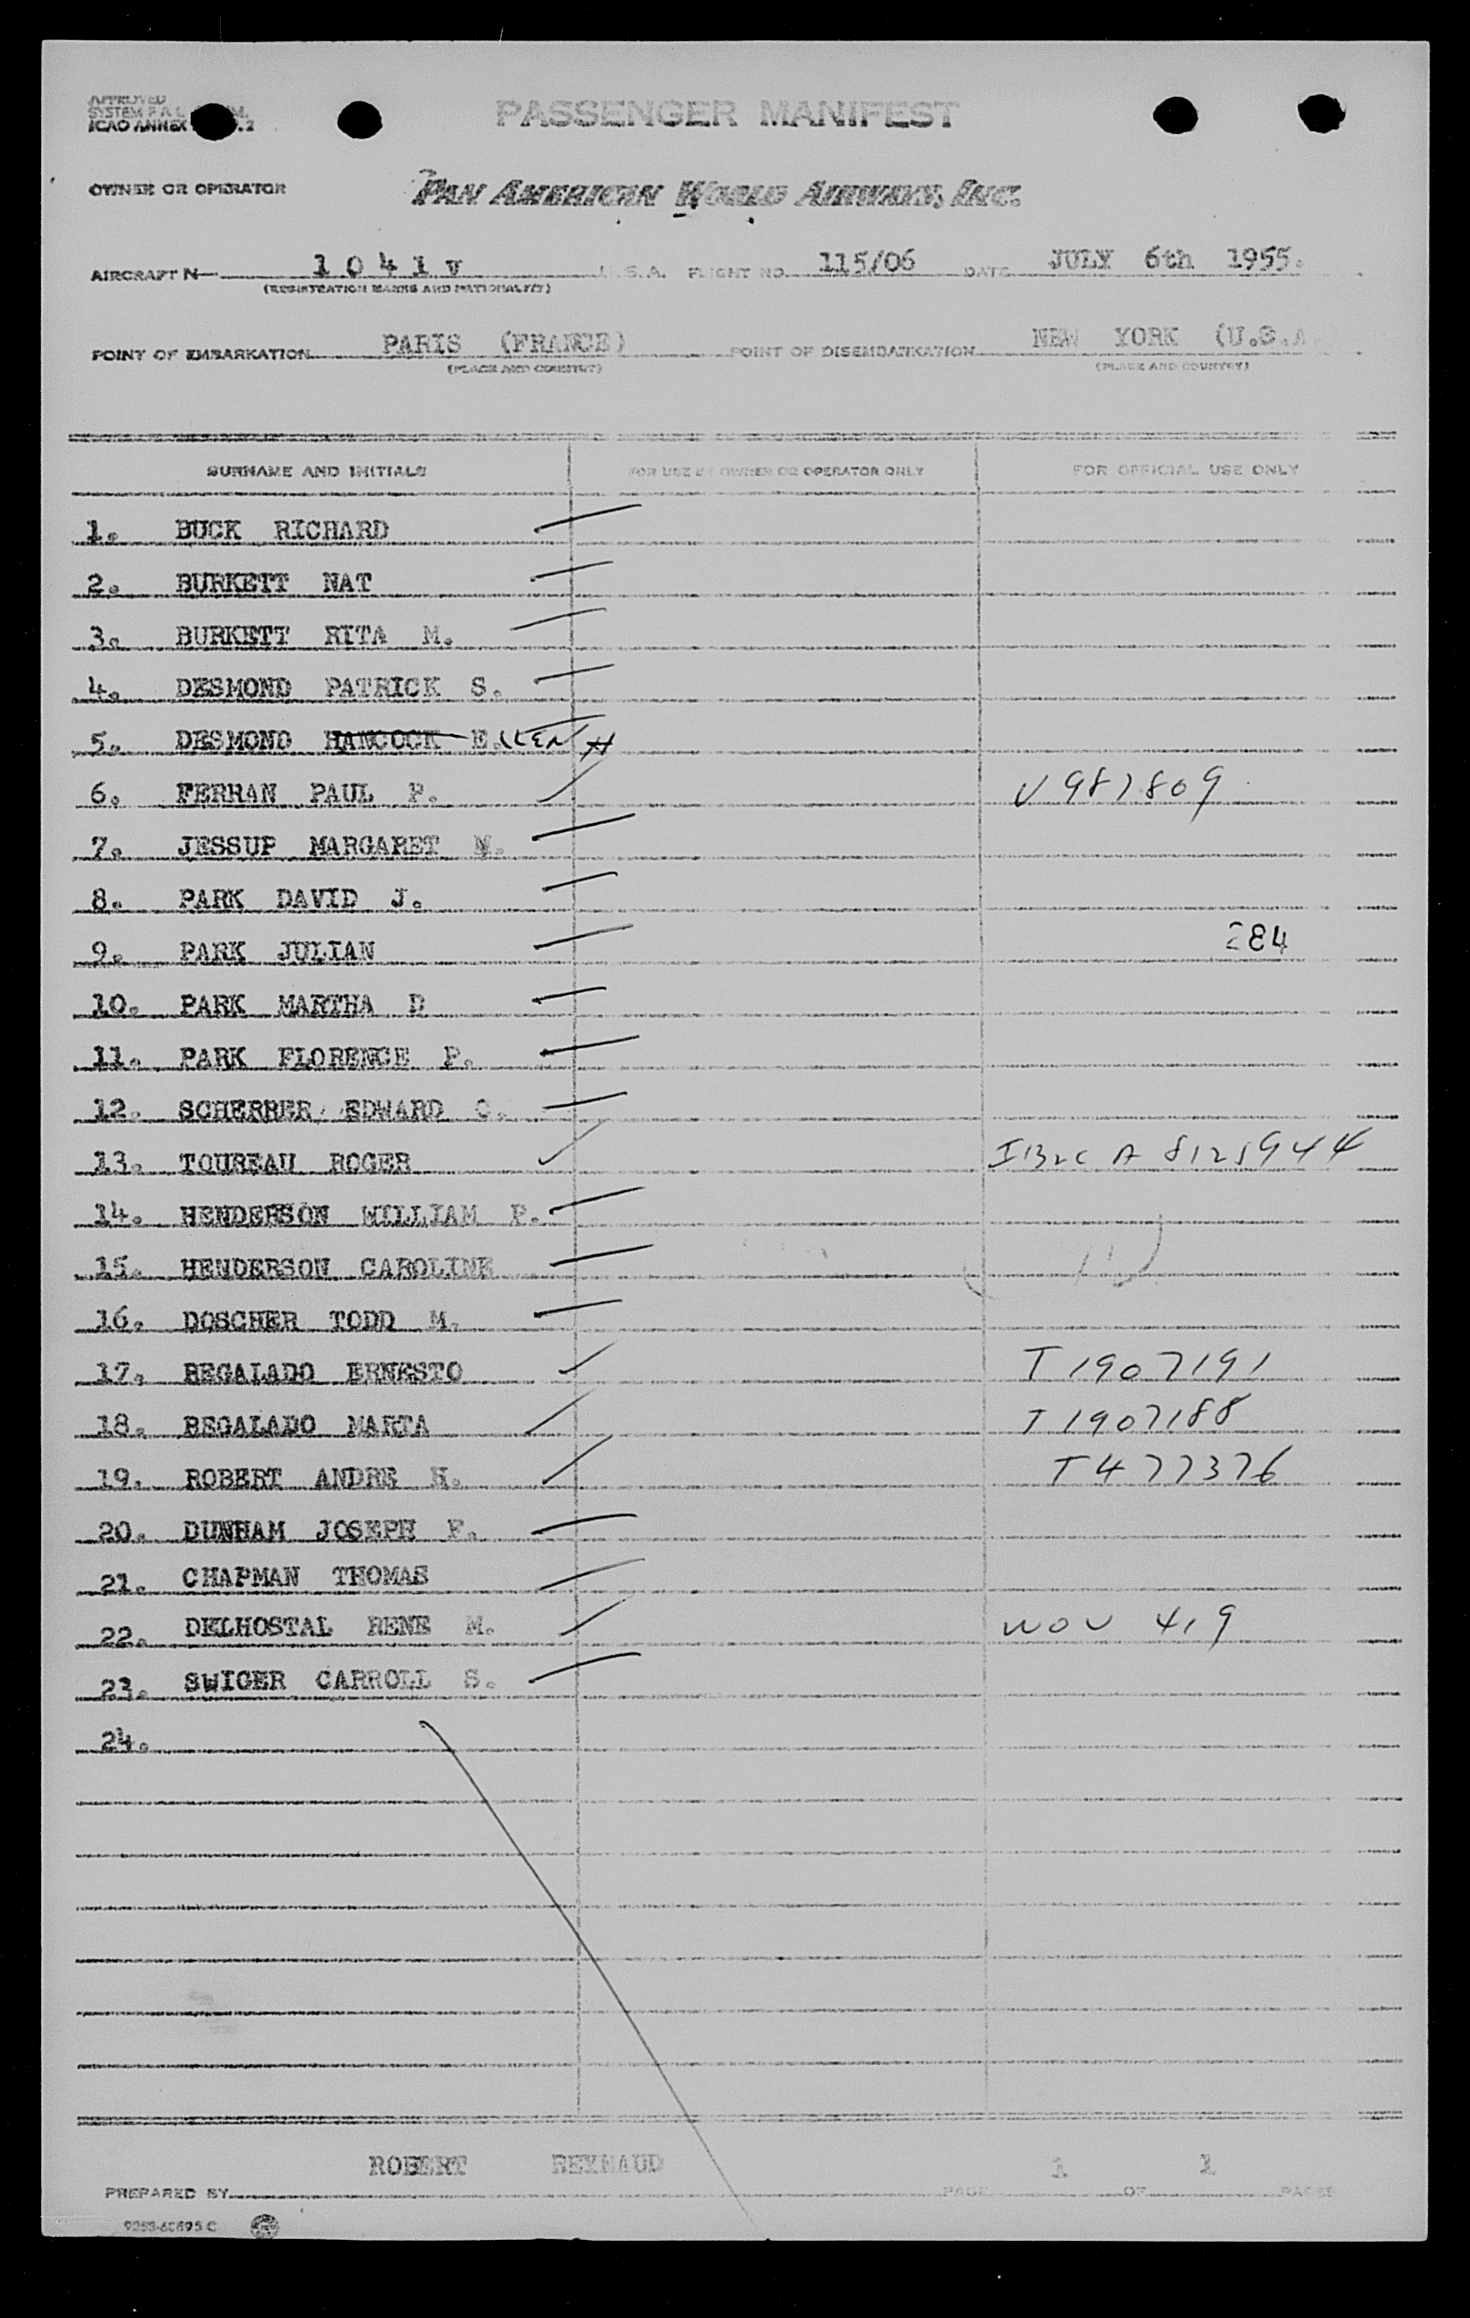 APPROVED
SYSTEM P A L
ICAO ANNEX .2
PASSENGER MANIFEST
OWNER OR OPERATOR PAN AMERICAN WORLD AIRWAYS, INC.
AIRCRAFT N 1 0 4 1 V U.S.A. FLIGHT NO. 115/06 DATE JULY 6th 1955.
(REGISTRATION MARKS AND NATIONALITY)
POINT OF EMBARKATION PARIS (FRANCE) POINT OF DISEMBARKATION NEW YORK (U.S.A.
(PLACE AND COUNTRY) (PLACE AND COUNTRY)
SURNAME AND INITIALS FOR USE BY OWNER OR OPERATOR ONLY FOR OFFICIAL USE ONLY
1. BUCK RICHARD
2. BURKETT NAT
3. BURKETT RITA M.
4. DESMOND PATRICK S.
5. DESMOND HANCOCK E.LLEN H
6. FERRAN PAUL P. V 987809
7. JESSUP MARGARET M.
8. PARK DAVID J.
9. PARK JULIAN 284
10. PARK MARTHA D
11. PARK FLORENCE P.
12. SCHERRER EDWARD C.
13. TOUREAU ROGER A 8125944
14. HENDERSON WILLIAM P.
15. HENDERSON CAROLINE
16. DOSCHER TODD M.
17. REGALADO ERNESTO T 1907191
18. REGALADO MARTA T 1907188
19. ROBERT ANDRE H. T 477376
20. DUNHAM JOSEPH F.
21. CHAPMAN THOMAS
22. DELHOSTAL RENE M. NOV 419
23. SWIGER CARROLL S.
24.
ROBERT REYNAUD 1 1
PREPARED BY PAGE OF PAGES